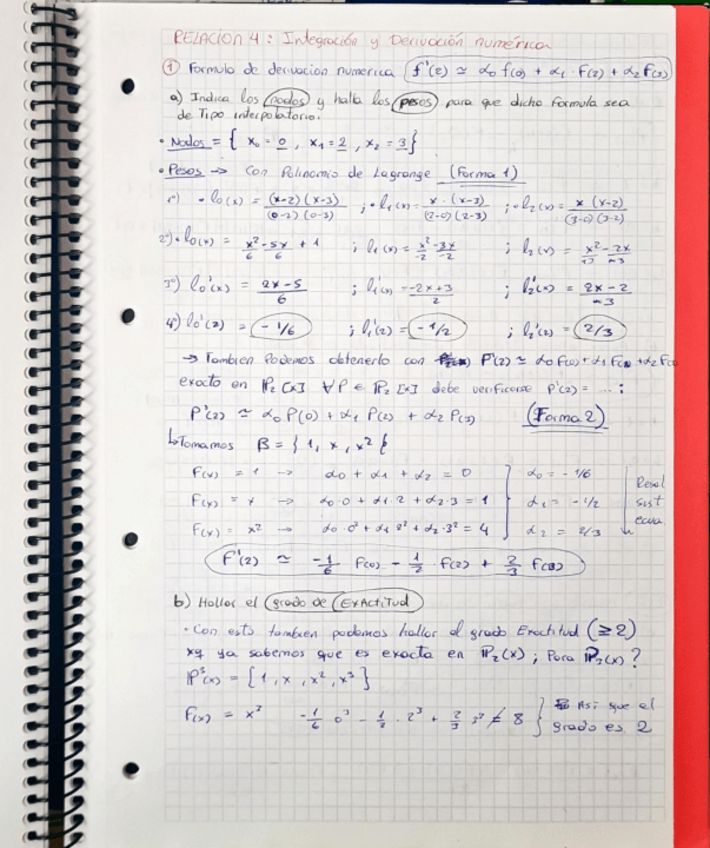 RELACIÓN 4: Integración y Derivación numérica
① Formula de derivación numérica f'(2) ≃ α₀ f(0) + α₁ · F(2) + α₂ F(3)
a) Indica los nodos y halla los pesos para que dicha formula sea
de Tipo interpolatorio.
• Nodos = { x₀ = 0, x₁ = 2, x₂ = 3 }
• Pesos → Con Polinomio de Lagrange (Forma 1)
1º) • l₀(x) = (x-2)(x-3) / (0-2)(0-3) ; • l₁(x) = x·(x-3) / (2-0)(2-3) ; • l₂(x) = x(x-2) / (3-0)(3-2)
2º) • l₀(x) = x²/6 - 5x/6 + 1 ; l₁(x) = x²/-2 - 3x/-2 ; l₂(x) = x² - 2x
3º) l₀'(x) = 2x-5 / 6 ; l₁'(x) = -2x+3 / 2 ; l₂'(x) = 2x-2
4º) l₀'(2) = -1/6 ; l₁'(2) = -1/2 ; l₂'(2) = 2/3
→ Tambien Podemos obtenerlo con P'(2) ≃ α₀ F(0) + α₁ F(2) + α₂ F(3)
exacto en P₂[x] ∀P ∈ P₂[x] debe verificarse P'(2) = ... :
P'(2) ≃ α₀ P(0) + α₁ P(2) + α₂ P(3) (Forma 2)
↳ Tomamos B = { 1, x, x² }
F(x) = 1 → α₀ + α₁ + α₂ = 0 } α₀ = -1/6 Resol
F(x) = x → α₀·0 + α₁·2 + α₂·3 = 1 } α₁ = -1/2 sist
F(x) = x² → α₀·0² + α₁ 2² + α₂·3² = 4 } α₂ = 2/3 ecua
F'(2) ≃ -1/6 F(0) - 1/2 · F(2) + 2/3 F(3)
b) Hallar el grado de ExActitud
• Con esto tambien podemos hallar el grado Exactitud (≥2)
xq ya sabemos que es exacta en P₂(x) ; Para P₃(x) ?
P³(x) = [1, x, x², x³]
F(x) = x³ -1/6 0³ - 1/2 · 2³ + 2/3 3³ ≠ 8 } Asi que el
grado es 2